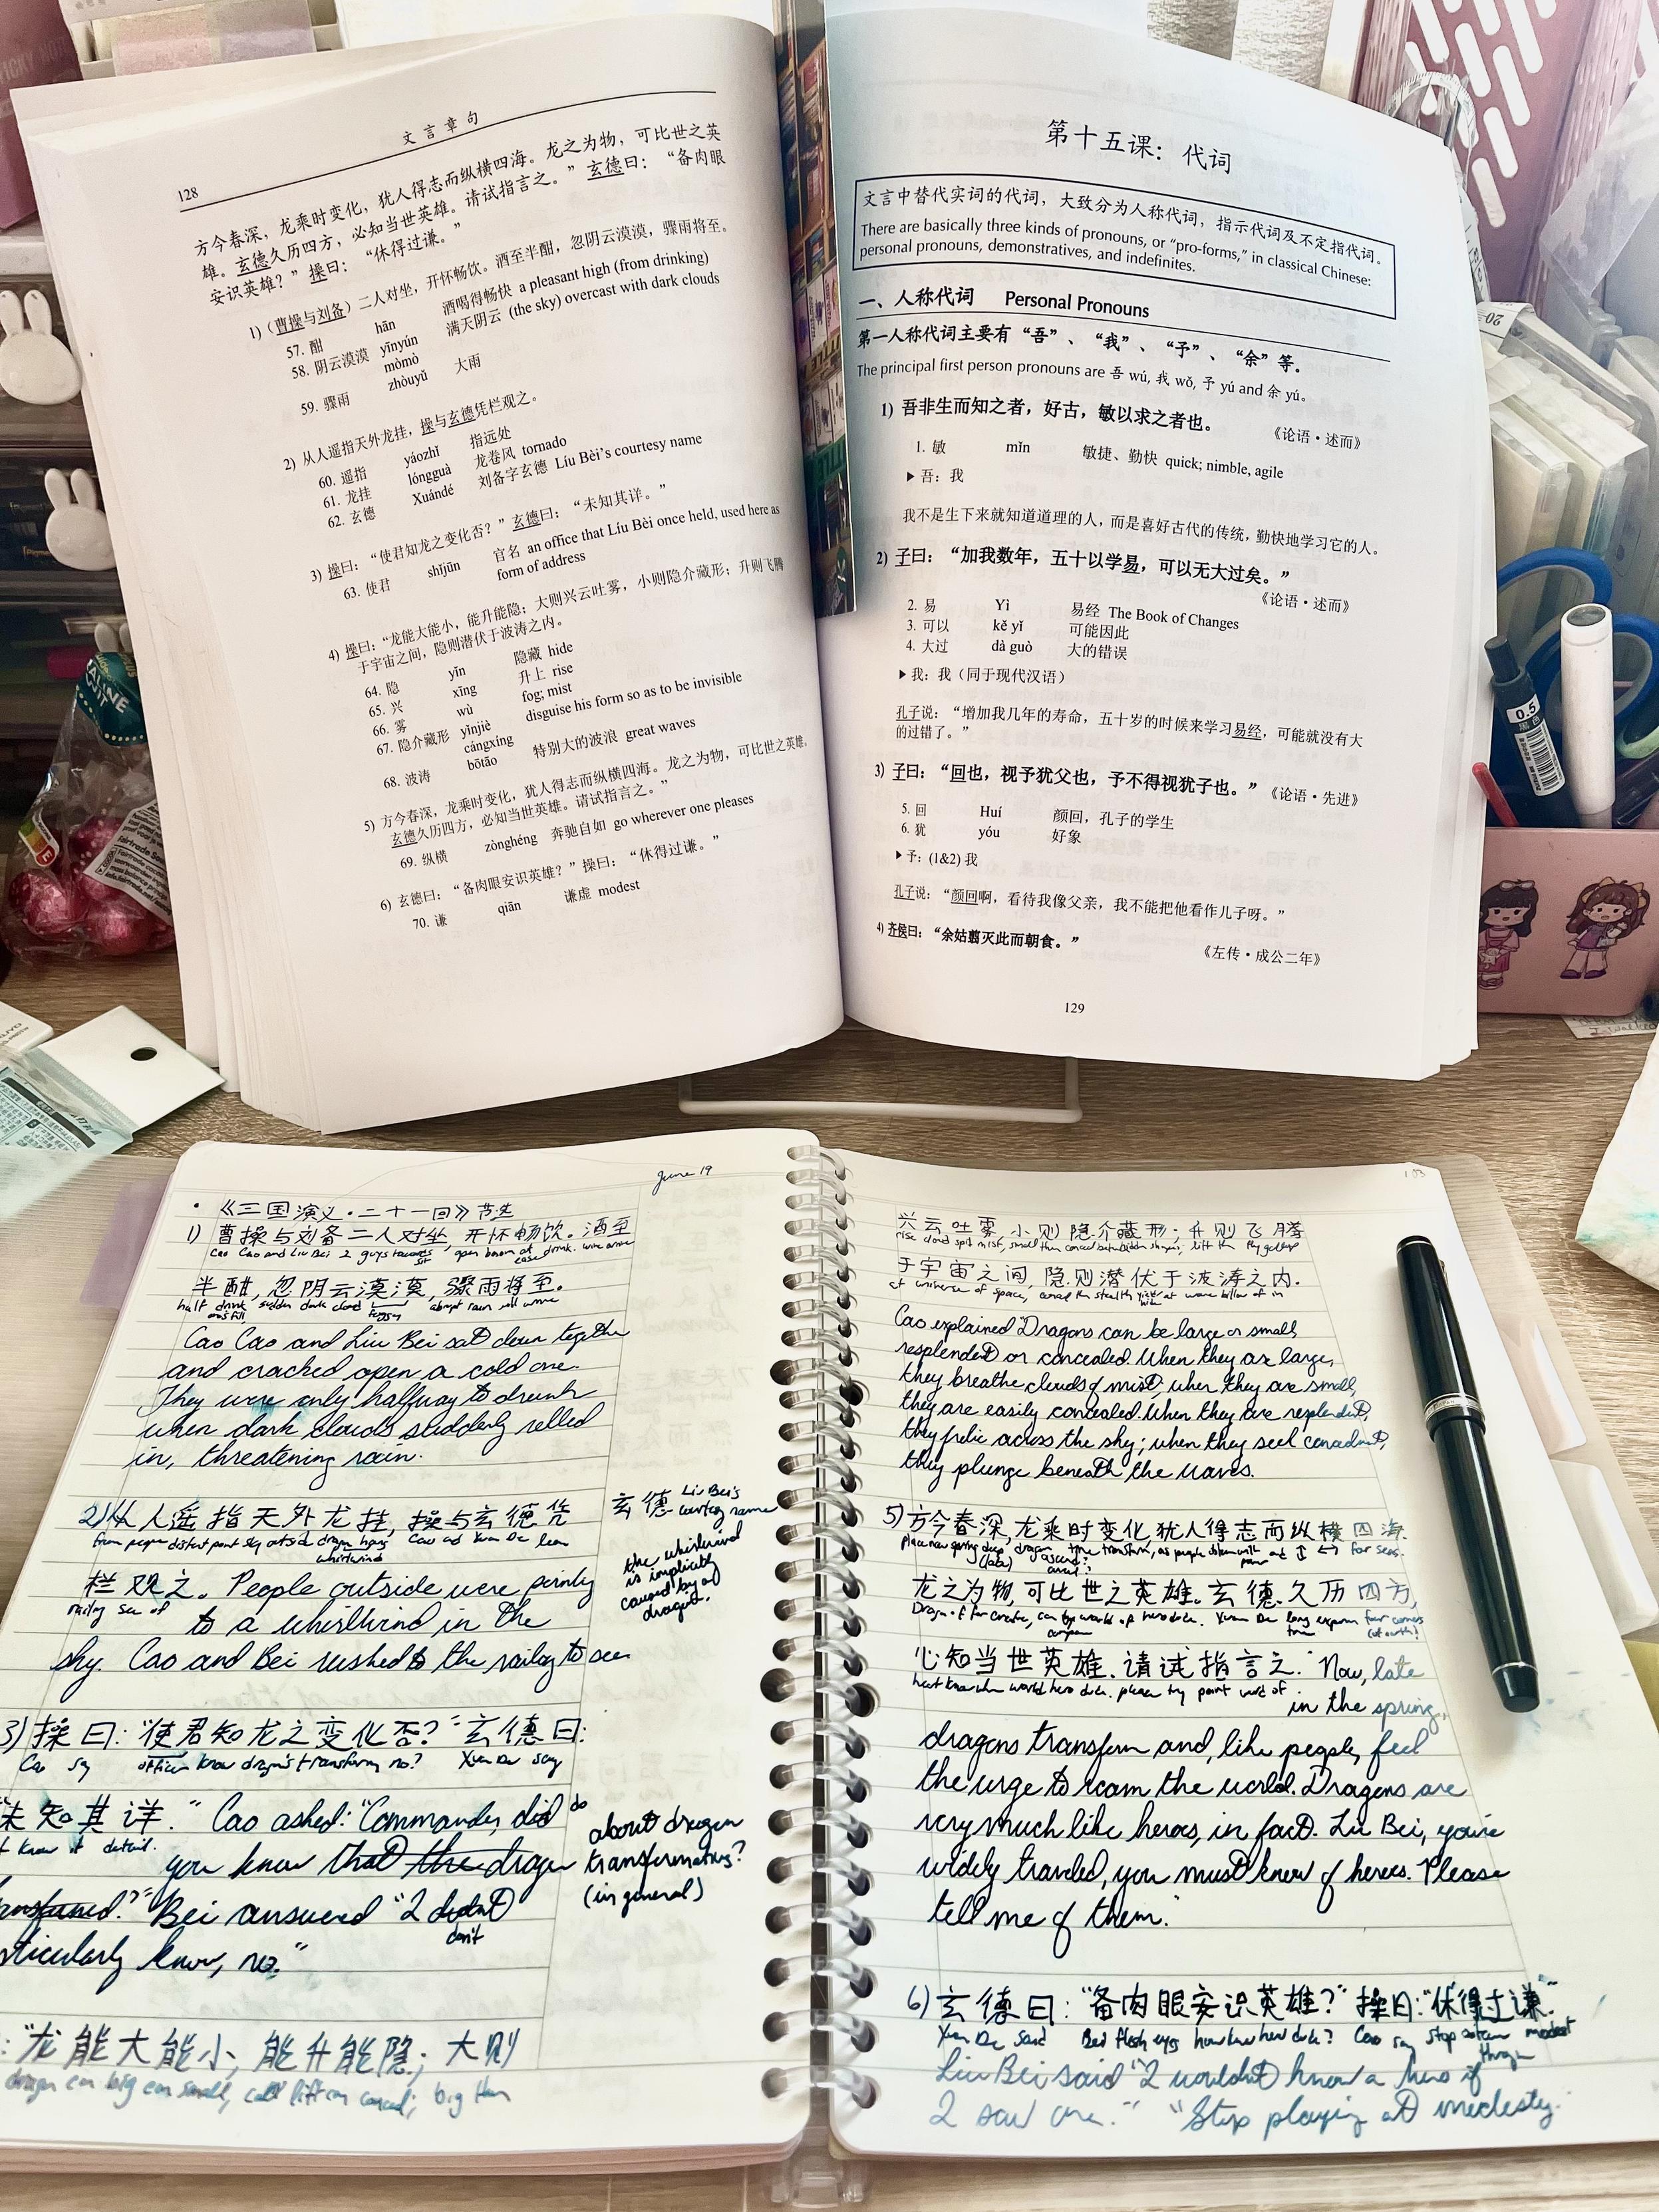 128
文言章句
方今春深，龙乘时变化，犹人得志而纵横四海。龙之为物，可比世之英
雄。玄德久历四方，必知当世英雄。请试指言之。”玄德曰：“备肉眼
安识英雄？”操曰：“休得过谦。”
1)（曹操与刘备）二人对坐，开怀畅饮。酒至半酣，忽阴云漠漠，骤雨将至。
57. 酣 hān 酒喝得畅快 a pleasant high (from drinking)
58. 阴云漠漠 yīnyún mòmò 满天阴云 (the sky) overcast with dark clouds
59. 骤雨 zhòuyǔ 大雨
2) 从人遥指天外龙挂，操与玄德凭栏观之。
60. 遥指 yáozhǐ 指远处
61. 龙挂 lóngguà 龙卷风 tornado
62. 玄德 Xuándé 刘备字玄德 Líu Bèi’s courtesy name
3) 操曰：“使君知龙之变化否？”玄德曰：“未知其详。”
63. 使君 shǐjūn 官名 an office that Líu Bèi once held, used here as
form of address
4) 操曰：“龙能大能小，能升能隐；大则兴云吐雾，小则隐介藏形；升则飞腾
于宇宙之间，隐则潜伏于波涛之内。
64. 隐 yǐn 隐藏 hide
65. 兴 xīng 升上 rise
66. 雾 wù fog; mist
67. 隐介藏形 yǐnjiè cángxíng disguise his form so as to be invisible
68. 波涛 bōtāo 特别大的波浪 great waves
5) 方今春深，龙乘时变化，犹人得志而纵横四海。龙之为物，可比世之英雄。
玄德久历四方，必知当世英雄。请试指言之。”
69. 纵横 zònghéng 奔驰自如 go wherever one pleases
6) 玄德曰：“备肉眼安识英雄？”操曰：“休得过谦。”
70. 谦 qiān 谦虚 modest
第十五课：代词
文言中替代实词的代词，大致分为人称代词，指示代词及不定指代词。
There are basically three kinds of pronouns, or “pro-forms,” in classical Chinese:
personal pronouns, demonstratives, and indefinites.
一、人称代词 Personal Pronouns
第一人称代词主要有“吾”、“我”、“予”、“余”等。
The principal first person pronouns are 吾 wú, 我 wǒ, 予 yú and 余 yú。
1) 吾非生而知之者，好古，敏以求之者也。
《论语·述而》
1. 敏 mǐn 敏捷、勤快 quick; nimble, agile
▶吾：我
我不是生下来就知道道理的人，而是喜好古代的传统，勤快地学习它的人。
2) 子曰：“加我数年，五十以学易，可以无大过矣。”
《论语·述而》
2. 易 Yì 易经 The Book of Changes
3. 可以 kě yǐ 可能因此
4. 大过 dà guò 大的错误
▶我：我（同于现代汉语）
孔子说：“增加我几年的寿命，五十岁的时候来学习易经，可能就没有大
的过错了。”
3) 子曰：“回也，视予犹父也，予不得视犹子也。”《论语·先进》
5. 回 Huí 颜回，孔子的学生
6. 犹 yóu 好象
▶予：(1&2) 我
孔子说：“颜回啊，看待我像父亲，我不能把他看作儿子呀。”
4) 齐侯曰：“余姑翦灭此而朝食。”
《左传·成公二年》
129
0.5
June 19
• 《三国演义·二十一回》节选
1) 曹操与刘备二人对坐，开怀畅饮。酒至
Cao Cao and Liu Bei 2 guys towards sit, open bosom at ease drink. wine arrive
半酣，忽阴云漠漠，骤雨将至。
half drink one's fill, sudden dark cloud foggy abrupt rain will arrive
Cao Cao and Liu Bei sat down together
and cracked open a cold one.
They were only halfway to drunk
when dark clouds suddenly rolled
in, threatening rain.
2) 从人遥指天外龙挂，操与玄德凭
from people distant point sky outside dragon hang whirlwind Cao and Xuan De lean
栏观之。 People outside were pointing
railing see of
to a whirlwind in the
sky. Cao and Bei rushed to the railing to see
玄德 Liu Bei's courtesy name
the whirlwind is implicitly caused by a dragon.
3) 操曰：“使君知龙之变化否？”玄德曰：
Cao say officer know dragon's transforming no? Xuan De say
“未知其详。” Cao asked: “Commander, did do
know it detail.
you know that the dragon
about dragon transformations? (in general)
Bei answered “I didn't don't
particularly know, no.”
：“龙能大能小，能升能隐；大则
dragon can big can small, can lift can conceal; big then
兴云吐雾，小则隐介藏形；升则飞腾
rise cloud spit mist, small then conceal between hidden shapes; lift then fly gallop
于宇宙之间，隐则潜伏于波涛之内。
at universe of space, conceal then stealth hide at wave billow of in
Cao explained “Dragons can be large or small,
resplendent or concealed. When they are large,
they breathe clouds of mist, when they are small,
they are easily concealed. When they are resplendent,
they frolic across the sky; when they seek concealment,
they plunge beneath the waves.
5) 方今春深，龙乘时变化，犹人得志而纵横四海。
龙之为物，可比世之英雄。玄德久历四方，
心知当世英雄。请试指言之。” Now, late
heart know when world hero dude. please try point word of
in the spring,
dragons transform and, like people, feel
the urge to roam the world. Dragons are
very much like heroes, in fact. Liu Bei, you're
widely traveled, you must know of heroes. Please
tell me of them.”
6) 玄德曰：“备肉眼安识英雄？”操曰：“休得过谦。”
Xuan De said Bei flesh eyes how know hero dude? Cao say stop through modest
Liu Bei said “I wouldn't know a hero if
I saw one.” “Stop playing at modesty.